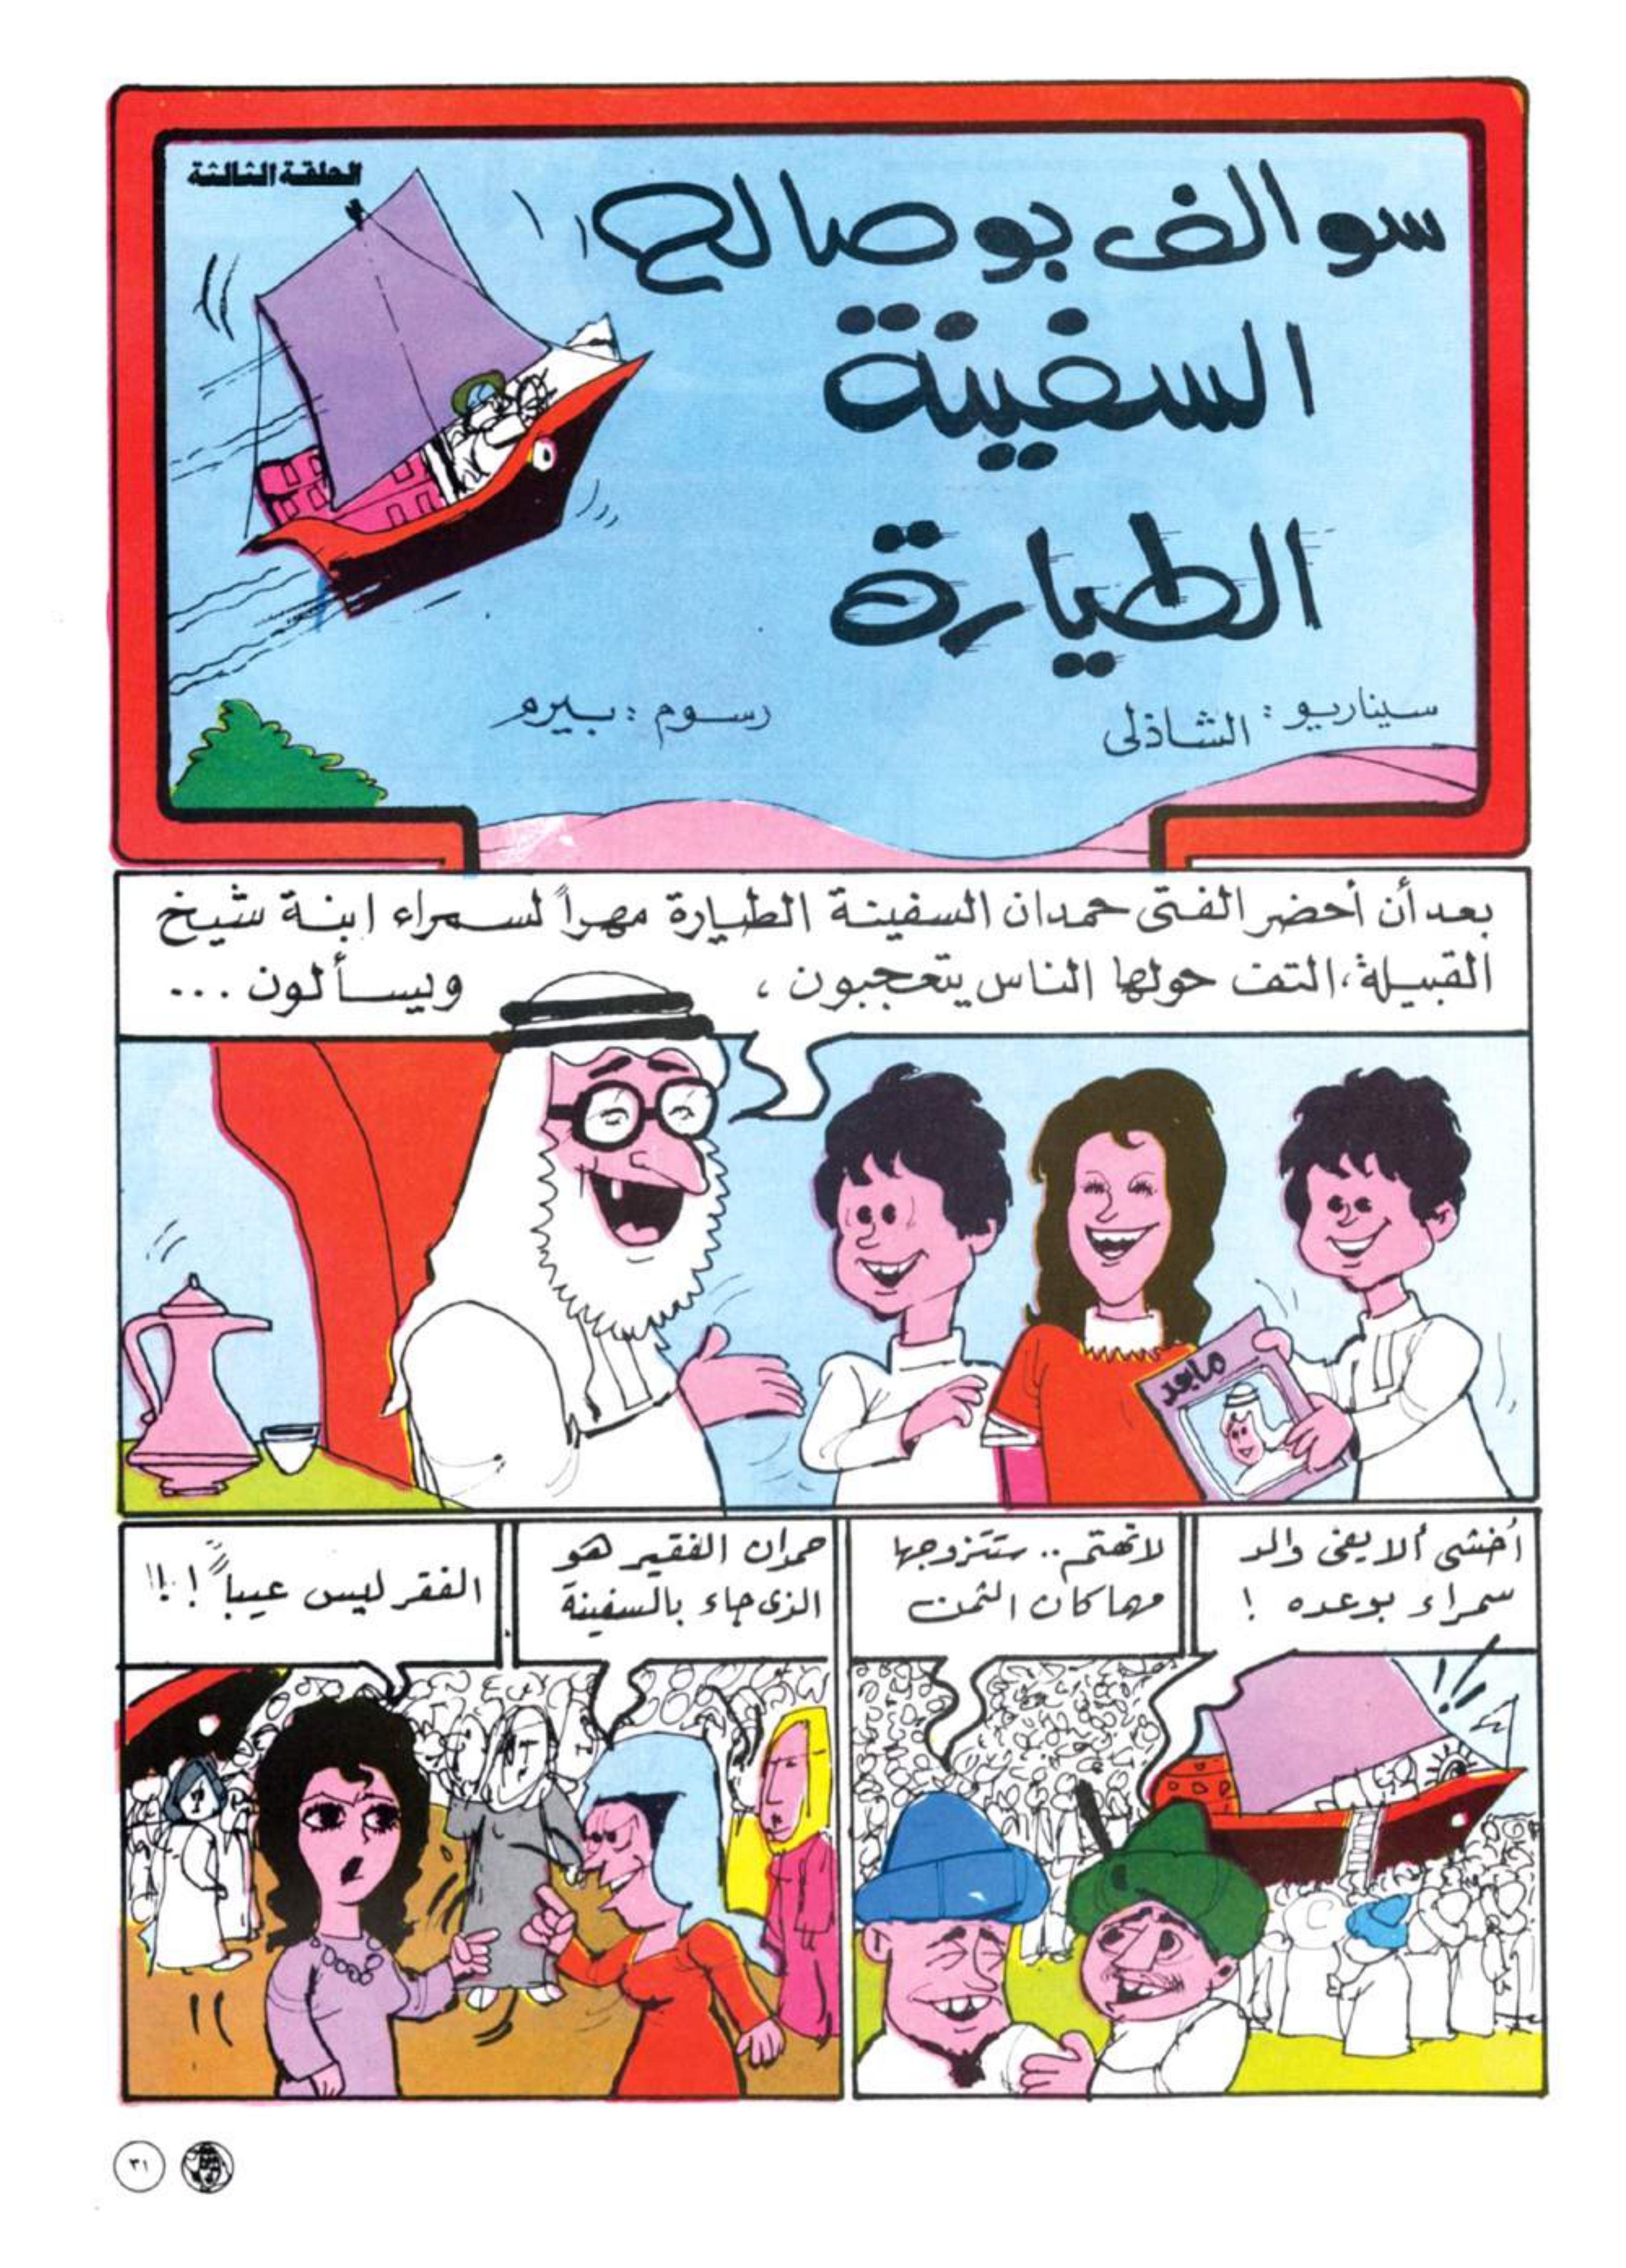 الحلقة الثالثة
سوالف بو صالح
السفينة
الطيارة
سيناريو : الشاذلى
رسوم : بيرم
بعد أن أحضر الفتى حمدان السفينة الطيارة مهراً لسمراء ابنة شيخ
القبيلة، التف حولها الناس يتعجبون ، ويسألون ...
ماجد
أخشى ألا يفى والد
سمراء بوعده !
لا تهتم .. ستتزوجها
مهما كان الثمن
حمدان الفقير هو
الذى جاء بالسفينة
الفقر ليس عيباً !!!
٣١